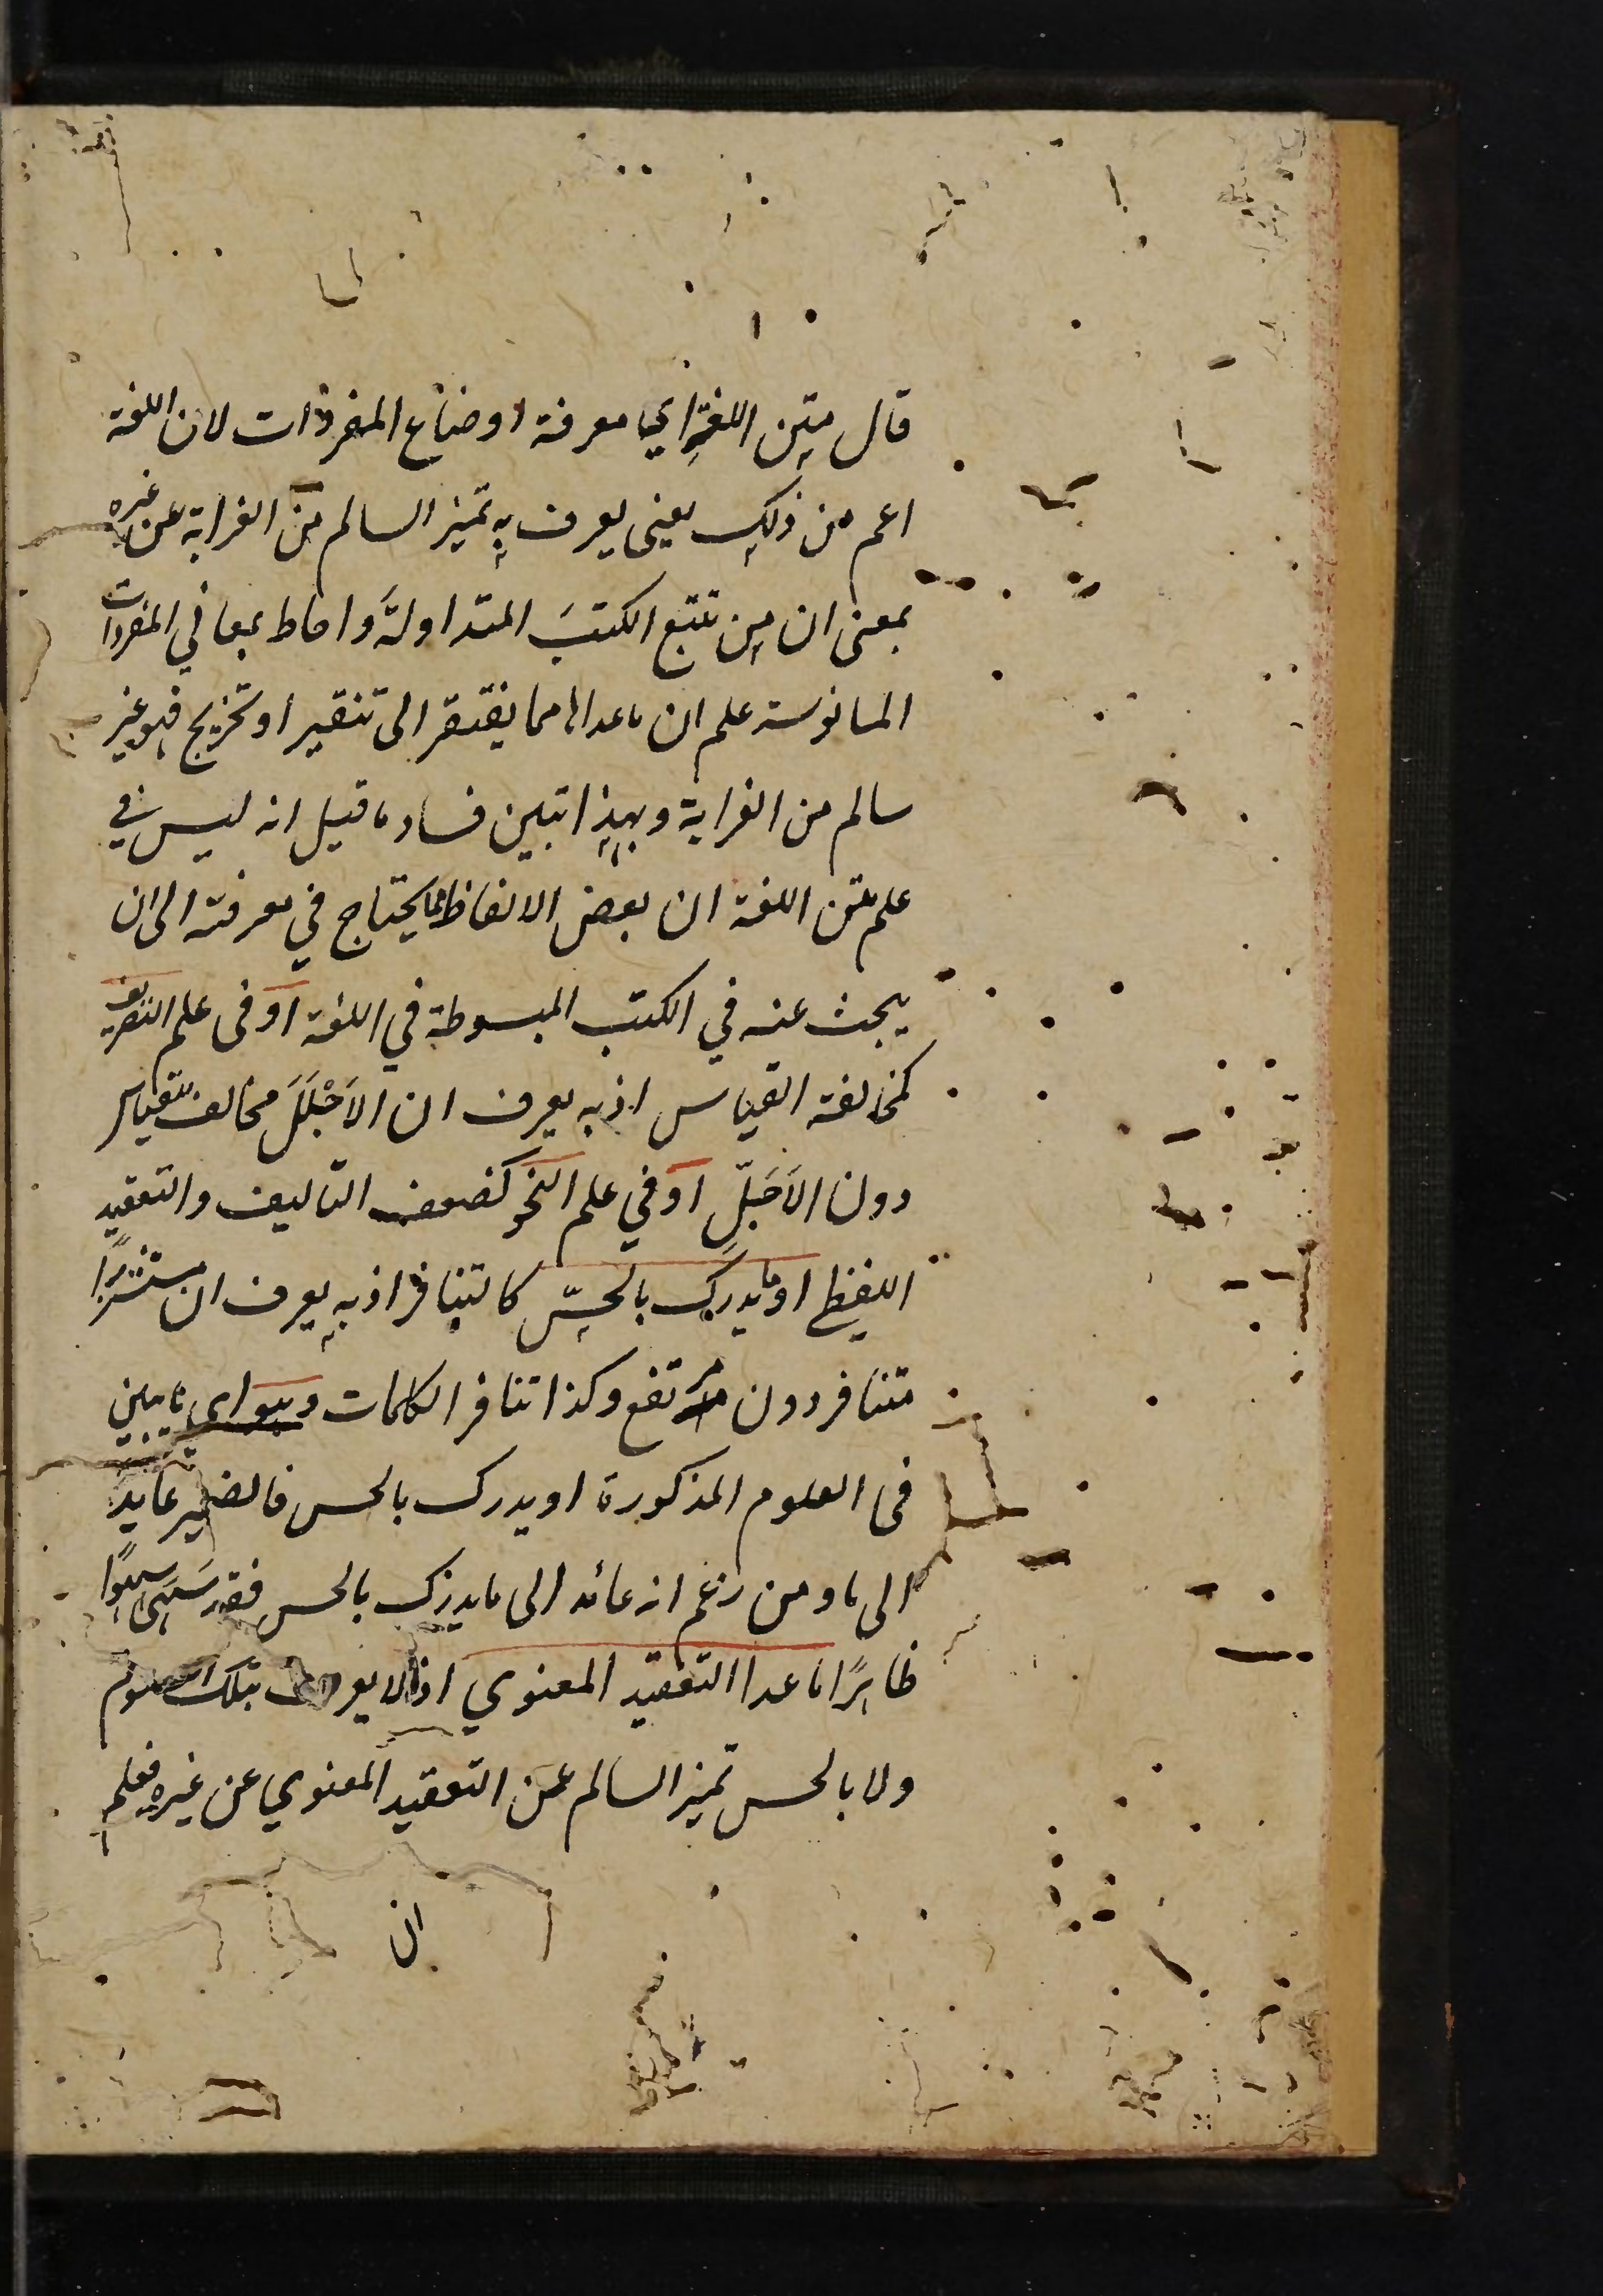 قال متن اللغة اي معرفة اوضاع المفردات لان اللغة
اعم من ذلك يعني يعرف به تميز السالم من الغرابة عن غيره
بمعنى ان من تتبع الكتبَ المتداولةَ واحاط بمعاني المفردات
المانوسة علم ان ماعداها مما يفتقر الى تنقير او تخريج فهو غير
سالم من الغرابة وبهذا تبين فساد ما قيل انه ليس في
علم متن اللغة ان بعض الالفاظ مما يحتاج في معرفته الى ان
يبحث عنه في الكتب المبسوطة في اللغة او فى علم التصريف
كمخالفة القياس اذ به يعرف ان الاَجْلَلَ مخالف للقياس
دون الاَجَلِّ او في علم النحو كضعف التاليف والتعقيد
اللفظي او يدرك بالحسّ كالتنافر اذ به يعرف ان مستشزرًا
متنافر دون مرتفع وكذا تنافر الكلمات وهو اى ما يبين
فى العلوم المذكورة او يدرك بالحس فالضمير عايد
الى ما ومن زعم انه عائد الى ما يدرك بالحس فقد سَهَى سهوًا
ظاهرًا ما عدا التعقيد المعنوي اذ لا يعرف بتلك العلوم
ولا بالحس تميز السالم عن التعقيد المعنوي عن غيره فعلم
ان